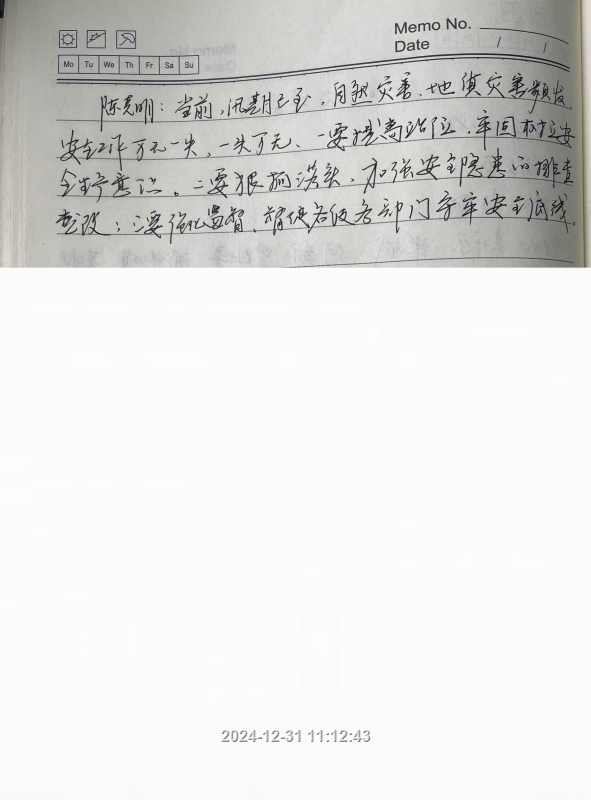 Memo No.
Date / /
Mo Tu We Th Fr Sa Su
陈克明：当前，汛期已至，自然灾害、地质灾害频发、
安全工作万无一失，一失万无、一要提高站位，牢固树立安
全生产意识。二要狠抓落实，加强安全隐患的排查
整改；三要强化监督，督促各级各部门守牢安全底线
2024-12-31 11:12:43